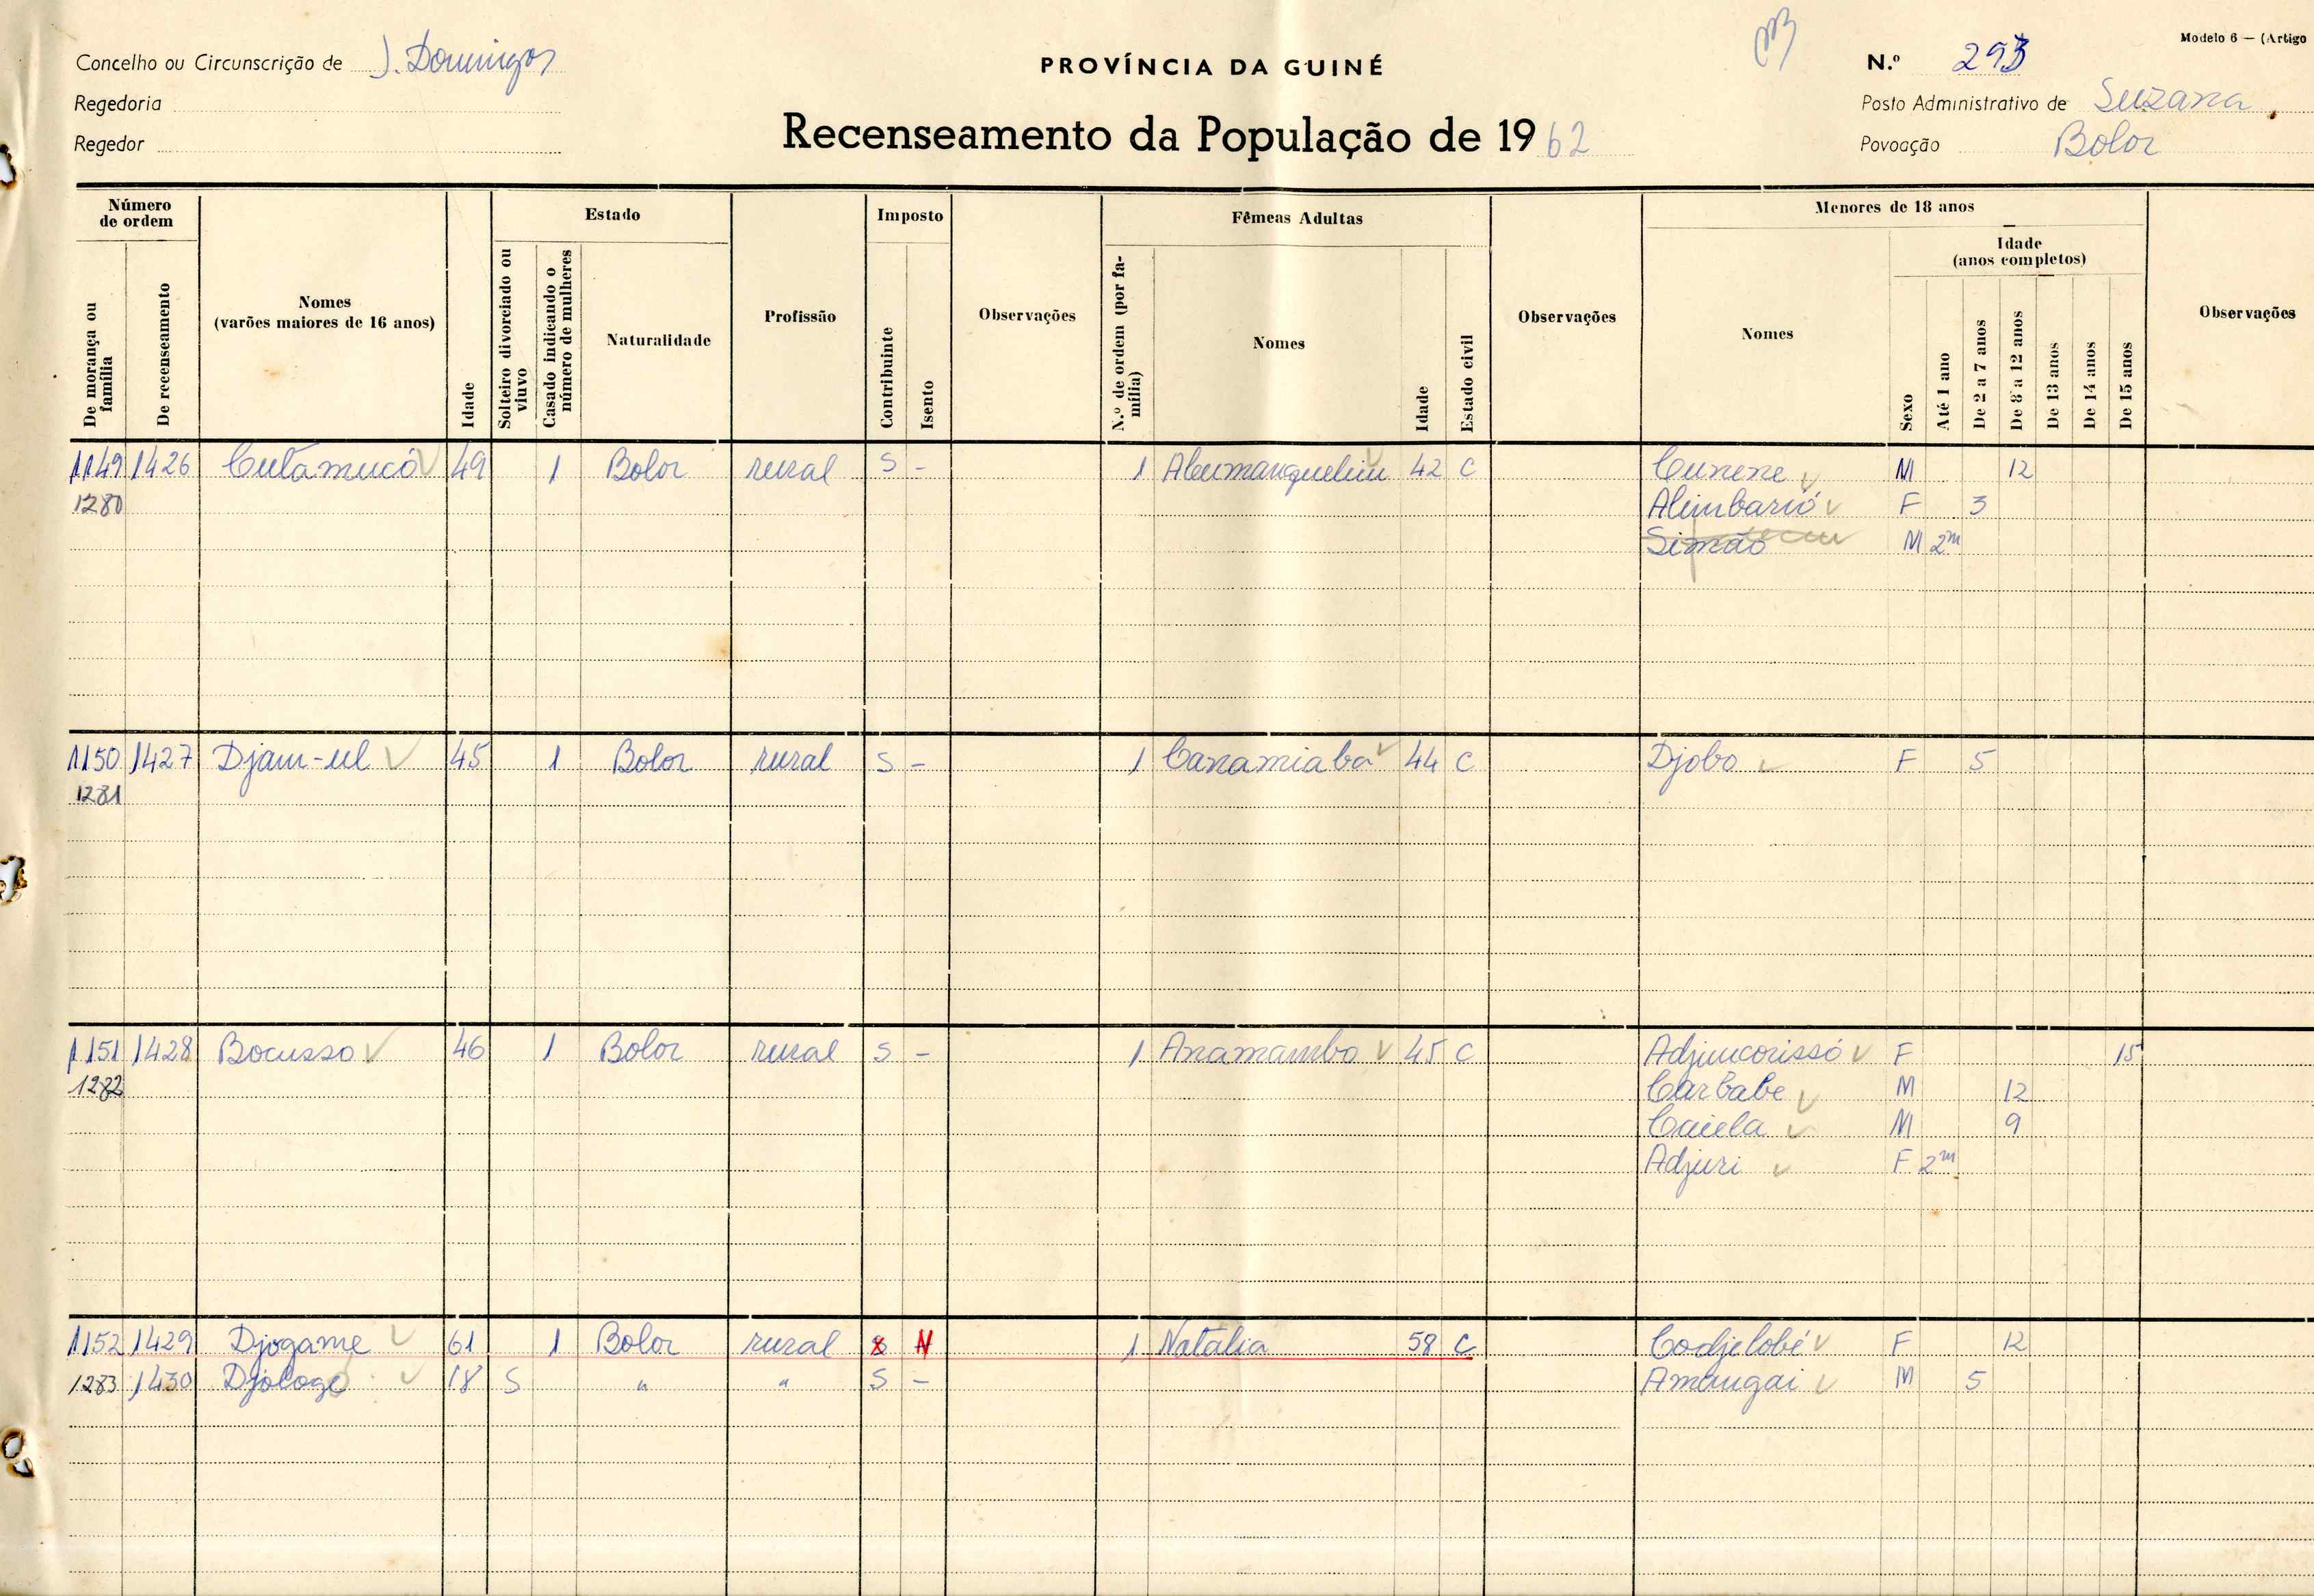 Modelo 6 — (Artigo
Concelho ou Circunscrição de S. Domingos
PROVÍNCIA DA GUINÉ
N.º 293
Regedoria
Posto Administrativo de Suzana
Regedor
Recenseamento da População de 1962
Povoação Bolor
Número de ordem
Estado
Imposto
Fêmeas Adultas
Menores de 18 anos
Idade (anos completos)
De morança ou família
De recenseamento
Nomes (varões maiores de 16 anos)
Idade
Solteiro divorciado ou viuvo
Casado indicando o número de mulheres
Naturalidade
Profissão
Contribuinte
Isento
Observações
N.º de ordem (por família)
Nomes
Idade
Estado civil
Observações
Nomes
Sexo
Até 1 ano
De 2 a 7 anos
De 8 a 12 anos
De 13 anos
De 14 anos
De 15 anos
Observações
1149 1426 Cutamucó 49 1 Bolor rural S - 1 42 C Cunene M 12
1280 Alimbarió F 3
Simão M 2m
1150 1427 Djam-ul 45 1 Bolor rural S - 1 Canamiaba 44 C Djobo F 5
1281
1151 1428 Bocusso 46 1 Bolor rural S - 1 Anamambo 45 C Adjincorissó F 15
1282 Carbabe M 12
Caiela M 9
Adjuri F 2m
1152 1429 Djogame 61 1 Bolor rural N 1 Natália 58 C Codjelobé F 12
1283 1430 18 S " " S - Amangai M 5